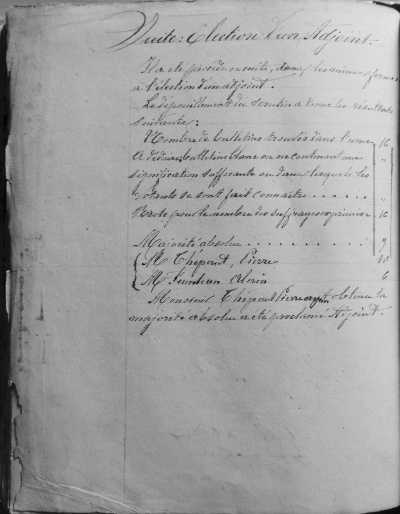 Suite: Election d'un Adjoint.
Il a été procédé ensuite, dans les mêmes formes
à l'élection d'un adjoint.
Le dépouillement du scrutin a donné les résultats
suivants:
Nombre de bulletins trouvés dans l'urne 16
A déduire bulletins blancs ou ne contenant une "
signification suffisante ou dans lesquels les
votants se sont fait connaître . . . . . . "
Reste pour le nombre des suffrages exprimés 16
Majorité absolue . . . . . . . . . . 9
M Thépaut, Pierre 10
M Alain 6
Monsieur Thépaut Pierre ayant obtenu la
majorité absolue a été proclamé Adjoint.